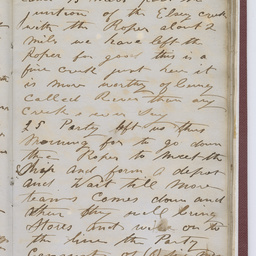 junction of the Elsey creek
with the Roper about 2
mile we have left the
Roper for good this is a
fine creek just here it
is more worthy of being
called River than any
Creek I ever saw
25 Party left us this
morning for to go down
the Roper to meet the
Ship and form a depot
and wait till more
teams comes down and
then they will bring
Stores and wire on to
the line the Party
Consists of